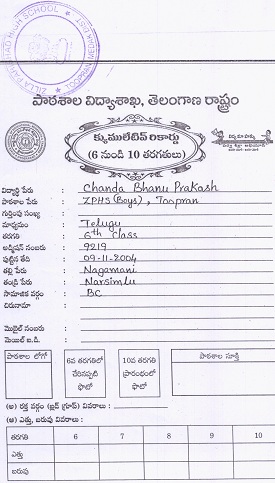 ZILLA PARISHAD HIGH SCHOOL
పాఠశాల విద్యాశాఖ, తెలంగాణ రాష్ట్రం
క్యుములేటివ్ రికార్డు
(6 నుండి 10 తరగతులు)
విద్యార్థి పేరు : Chanda Bhanu Prakash
పాఠశాల పేరు : ZPHS (Boys), Toopran
గుర్తింపు సంఖ్య :
మాధ్యమం : Telugu
తరగతి : 6th class
అడ్మిషన్ నంబరు : 9219
పుట్టిన తేది : 09-11-2004
తల్లి పేరు : Nagamani
తండ్రి పేరు : Narsimlu
సామాజిక వర్గం : BC
చిరునామా :
మొబైల్ నంబరు :
మెయిల్ ఐ.డి. :
పాఠశాల లోగో
6వ తరగతిలో చేరినప్పటి ఫొటో
10వ తరగతి ప్రారంభంలో ఫొటో
పాఠశాల సూక్తి
(అ) రక్త వర్గం (బ్లడ్ గ్రూప్) వివరాలు :
(ఆ) ఎత్తు, బరువు వివరాలు :
తరగతి 6 7 8 9 10
ఎత్తు
బరువు